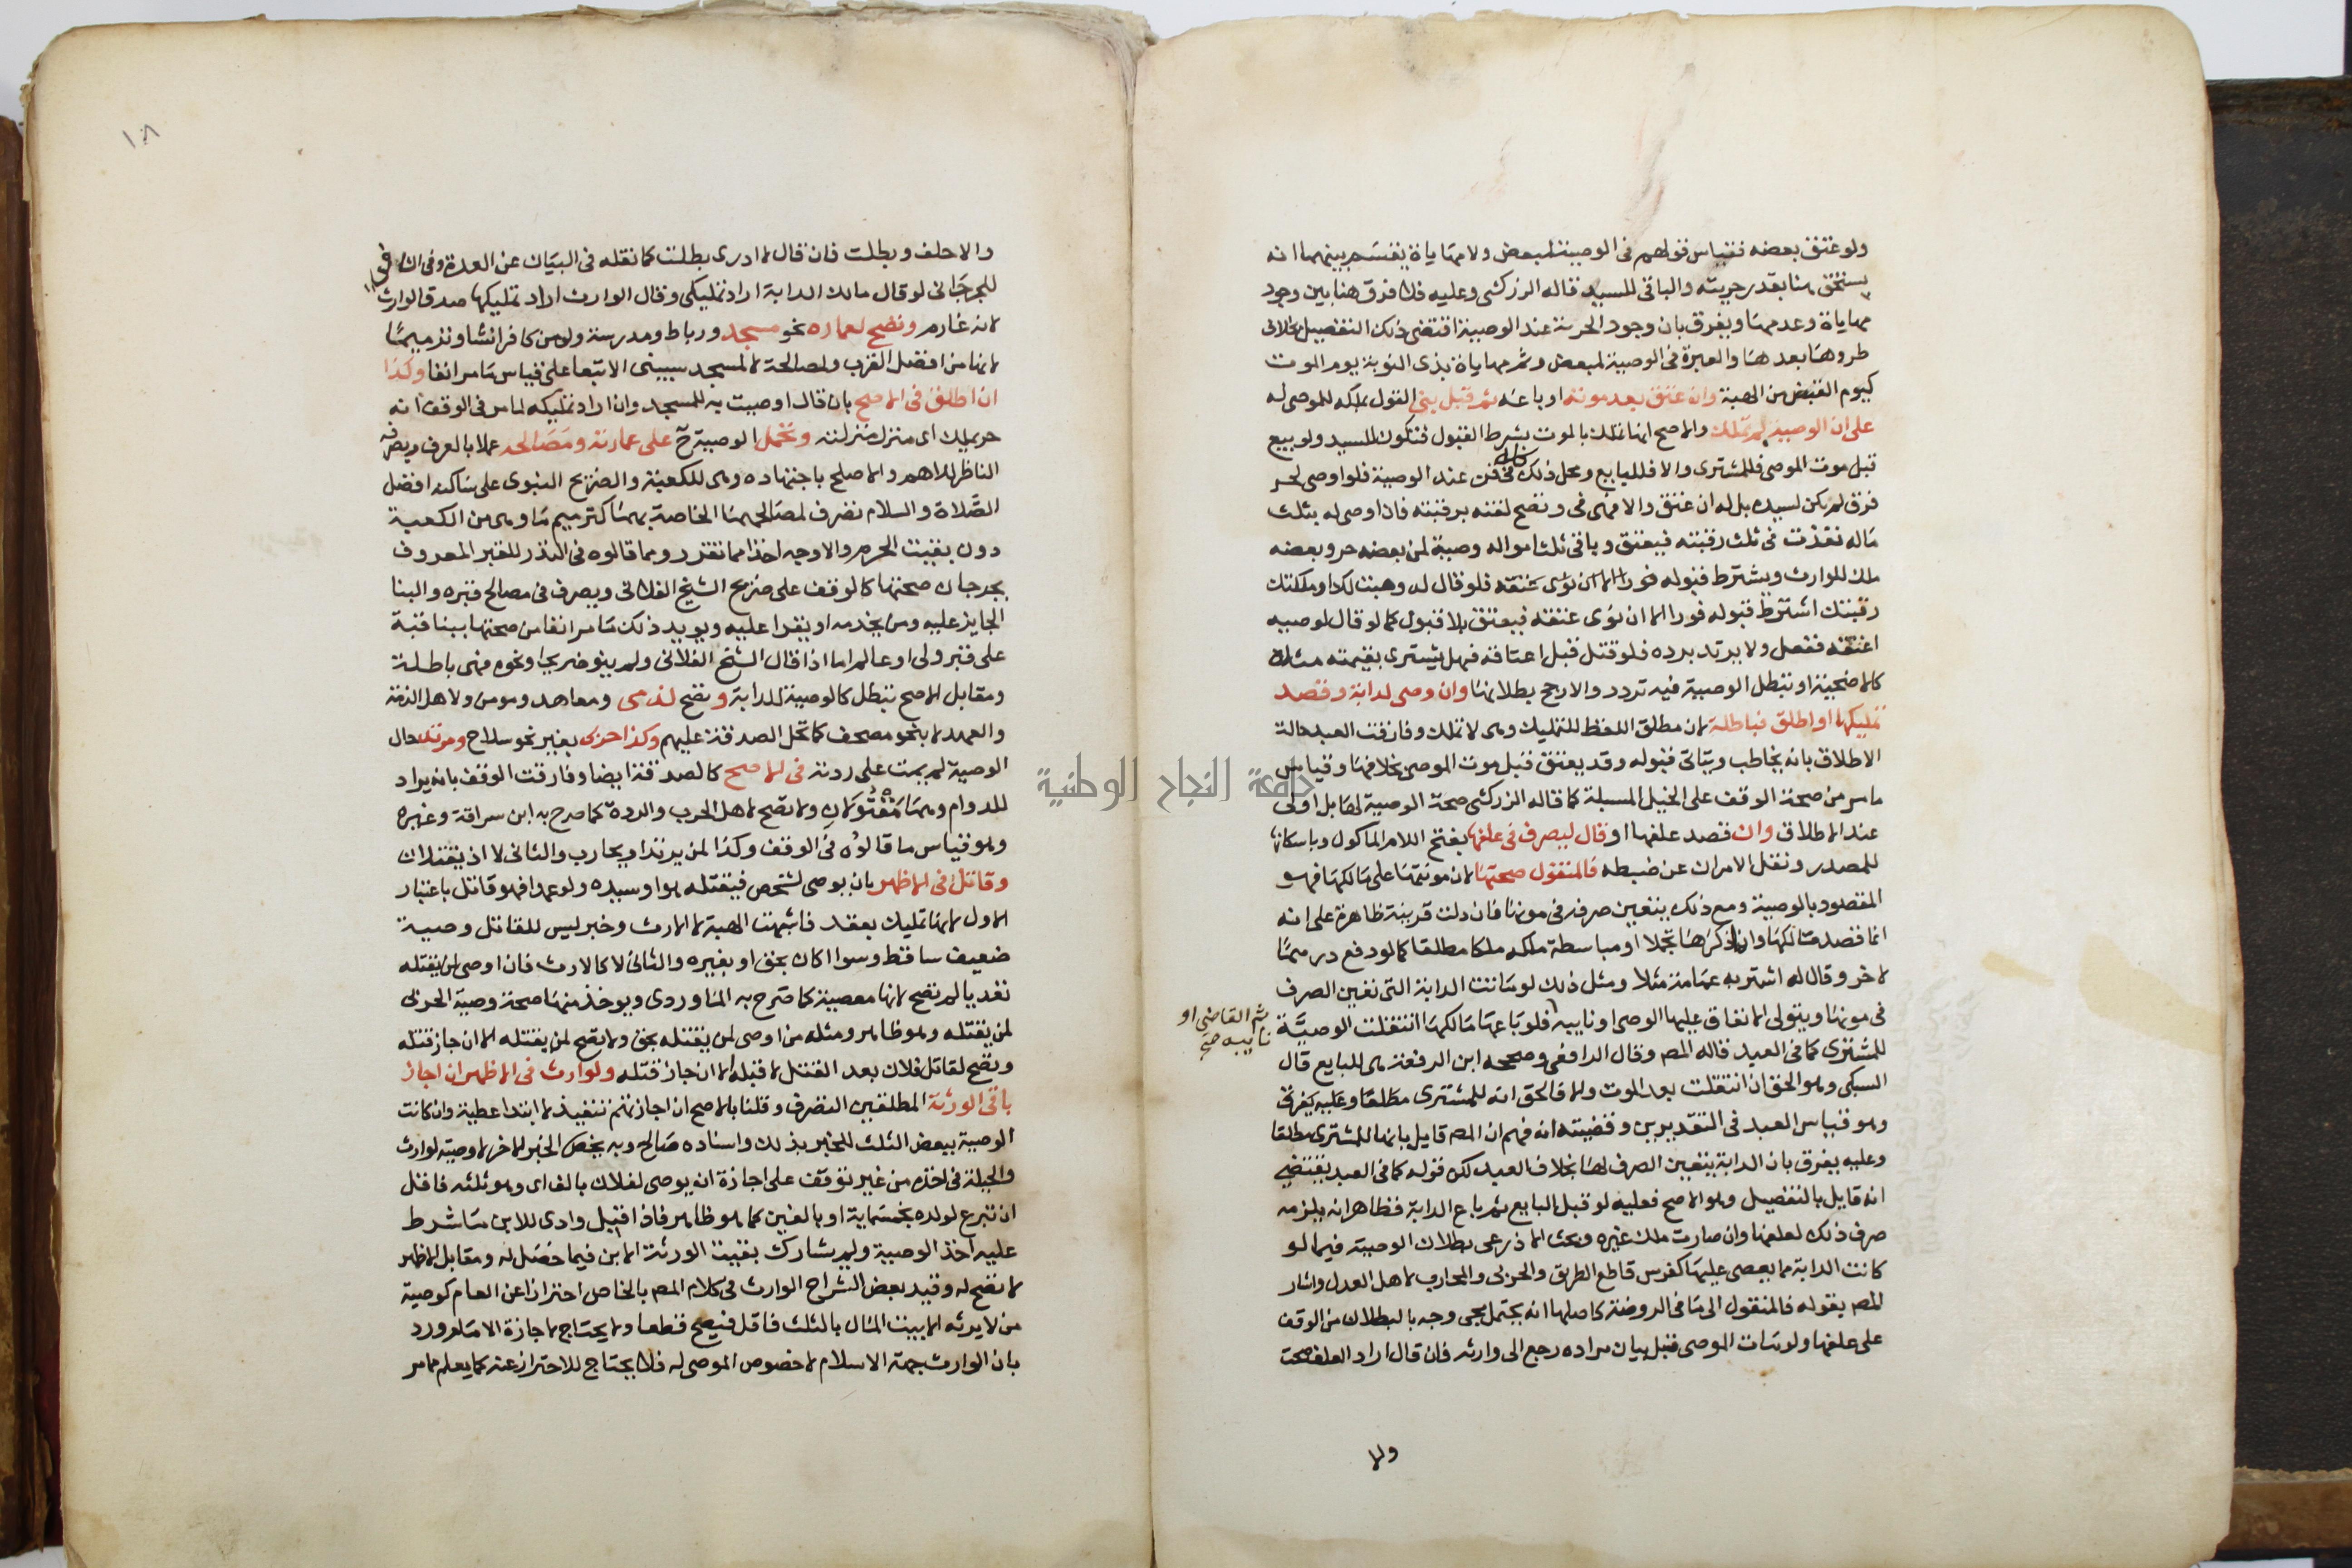 ولو عتق بعضه فقياس قولهم في الوصية لمبعض ولا مهاياة يقسم بينهما انه
يستحق منا بقدر حريته والباقي للسيد قاله الزركشي وعليه فلا فرق هنا بين وجود
مهاياة وعدمها ويفرق بان وجود الحرية عند الوصية اقتضى ذلك التفصيل بخلاف
طروها بعدها والعبرة في الوصية لمبعض وثم مهاياة بذي النوبة يوم الموت
كيوم القبض من الهبة وان عتق بعد موته او باعه ثم قبل بني القول بملكه للموصى له
على ان الوصية بم تملك والاصح انها تملك بالموت بشرط القبول فتكون للسيد ولو بيع
قبل موت الموصي فللمشتري والا فللبايع ومحل ذلك في قن عند الوصية فلو اوصى لحر
فرق لم تكن لسيده بل له ان عتق والا فهي فيء وتصح لقنه برقبته فاذا اوصى له بثلث
ماله نفذت في ثلث رقبته فيعتق وباقي ثلث امواله وصية لمن بعضه حر وبعضه
ملك للوارث ويشترط قبوله فورا الا ان نوى عتقه فلو قال له وهبت لك او ملكتك
رقبتك اشترط قبوله فورا الا ان نوى عتقه فيعتق بلا قبول كما لو قال لوصيه
اعتقه ففعل ولا يرتد برده فلو قتل قبل اعتاقه فهل يشترى بقيمته مثله
كالاضحية او تبطل الوصية فيه تردد والارجح بطلانها وان وصى لدابة وقصد
تمليكها او اطلق فباطلة لان مطلق اللفظ للتمليك وهي لا تملك وفارقت العبد حالة
الاطلاق بانه يخاطب ويتاتى قبوله وقد يعتق قبل موت الموصي بخلافها وقياس
ما مر من صحة الوقف على الخيل المسبلة كما قاله الزركشي صحة الوصية لها بل اولى
عند الاطلاق وان قصد علفها او قال ليصرف في علفها بفتح اللام الماكول وباسكانها
للمصدر ونقل الامران عن ضبطه فالمنقول صحتها لان مونتها على مالكها فهو
المقصود بالوصية ومع ذلك يتعين صرفه في مونتها فان دلت قرينة ظاهرة على انه
انما قصد مالكها وانما ذكرها تجملا او مباسطة ملكه ملكا مطلقا كما لو دفع درهما
لاخر وقال له اشتر به عمامة مثلا ومثل ذلك لو ماتت الدابة التي تعين الصرف
في مونتها ويتولى الانفاق عليها الوصي او نايبه فلو باعها مالكها انتقلت الوصية
ثم القاضي او
نايبه صح
للمشتري كما في العبد قاله المص وقال الرافعي وصححه ابن الرفعة هي للبايع قال
السبكي وهو الحق ان انتقلت بعد الموت والا فالحق انه للمشتري مطلقا وعليه يفرق
وهو قياس العبد في التقديرين وقضيته انه فهم ان المص قايل بانها للمشتري مطلقا
وعليه يفرق بان الدابة يتعين الصرف لها بخلاف العبد لكن قوله كما في العبد يقتضي
انه قايل بالتفصيل وهو الاصح فعليه لو قبل البايع ثم باع الدابة فظاهر انه يلزمه
صرف ذلك لعلفها وان صارت ملك غيره وبحث الاذرعي بطلان الوصية فيما لو
كانت الدابة مما يعصي عليها كفرس قاطع الطريق والحربي والمحارب لاهل العدل واشار
المص بقوله فالمنقول الى ما في الروضة كاصلها انه يحتمل مجي وجه بالبطلان من الوقف
على علفها ولو مات الموصي قبل بيان مراده رجع الى وارثه فان قال اراد العلف صحت
ولا
١٠٨
والا حلف وبطلت فان قال لا ادري بطلت كما نقله في البيان عن العدة وفي الشافي
للجرجاني لو قال مالك الدابة اراد تمليكي وقال الوارث اراد تمليكها صدق الوارث
لانه غارم وتصح لعماره نحو مسجد ورباط ومدرسة ولو من كافر انشا وترميما
لانها من افضل القرب ولمصالحه لا لمسجد سيبنى الا تبعا على قياس ما مر انفا وكذا
ان اطلق في الاصح بان قال اوصيت به للمسجد وان اراد تمليكه لما مر في الوقف انه
حر يملك اي منزل منزلته وتحمل الوصية ح على عمارته ومصالحه عملا بالعرف ويصرفه
الناظر للاهم والاصلح باجتهاده وهي للكعبة والضريح النبوي على ساكنه افضل
الصلاة والسلام تصرف لمصالحهما الخاصة بهما كترميم ما وهى من الكعبة
دون بقية الحرم والاوجه اخذا مما تقرر ومما قالوه في النذر للقبر المعروف
بجرجان صحتها كالوقف على ضريح الشيخ الفلاني ويصرف في مصالح قبره والبنا
الجايز عليه ومن يخدمه او يقرا عليه ويويد ذلك ما مر انفا من صحتها ببنا قبة
على قبر ولي او عالم اما اذا قال الشيخ الفلاني ولم ينو ضريحه او نحوه فهي باطلة
ومقابل الاصح تبطل كالوصية للدابة وتصح لذمي ومعاهد ومومن ولاهل الذمة
والعهد لا بنحو مصحف كما تحل الصدقة عليهم وكذا حربي بغير نحو سلاح ومرتد حال
الوصية لم يمت على ردته في الاصح كالصدقة ايضا وفارقت الوقف بانه يراد
للدوام وهما مقتولان ولا تصح لاهل الحرب والردة كما صرح به ابن سراقة وغيره
وهو قياس ما قالوه في الوقف وكذا لمن يرتد او يحارب والثاني لا اذ يقتلان
وقاتل في الاظهر بان يوصي لشخص فيقتله هو او سيده ولو عمدا فهو قاتل باعتبار
الاول لانها تمليك بعقد فاشبهت الهبة لا الارث وخبر ليس للقاتل وصية
ضعيف ساقط وسوا اكان بحق او بغيره والثاني لا كالارث فان اوصى لمن يقتله
تعديا لم تصح لانها معصية كما صرح به الماوردي ويوخذ منها صحة وصية الحربي
لمن يقتله وهو ظاهر ومثله من اوصى لمن يقتله بحق ولا تصح لمن يقتله الا ان جاز قتله
وتصح لقاتل فلان بعد القتل لا قبله الا ان جاز قتله ولوارث في الاظهر ان اجاز
باقي الورثة المطلقين التصرف وقلنا بالاصح ان اجازتهم تنفيذ لا ابتدا عطية وان كانت
الوصية ببعض الثلث للخبر بذلك واسناده صالح وبه يخص الخبر الاخر لا وصية لوارث
والحيلة في اخذه من غير توقف على اجازة ان يوصي لفلان بالف اي وهو ثلثه فاقل
ان تبرع لولده بخمسماية او بالفين كما هو ظاهر فاذا اقبل وادى للابن ما شرط
عليه اخذ الوصية ولم يشارك بقية الورثة الابن فيما حصل له ومقابل الاظهر
لا تصح له وقيد بعض الشراح الوارث في كلام المص بالخاص احترازا عن العام كوصية
من لا يرثه الا بيت المال بالثلث فاقل فيصح قطعا ولا يحتاج لاجازة الامام ورد
بان الوارث جهة الاسلام لا خصوص الموصى له فلا يحتاج للاحتراز عنه كما يعلم مما مر
جامعة النجاح الوطنية